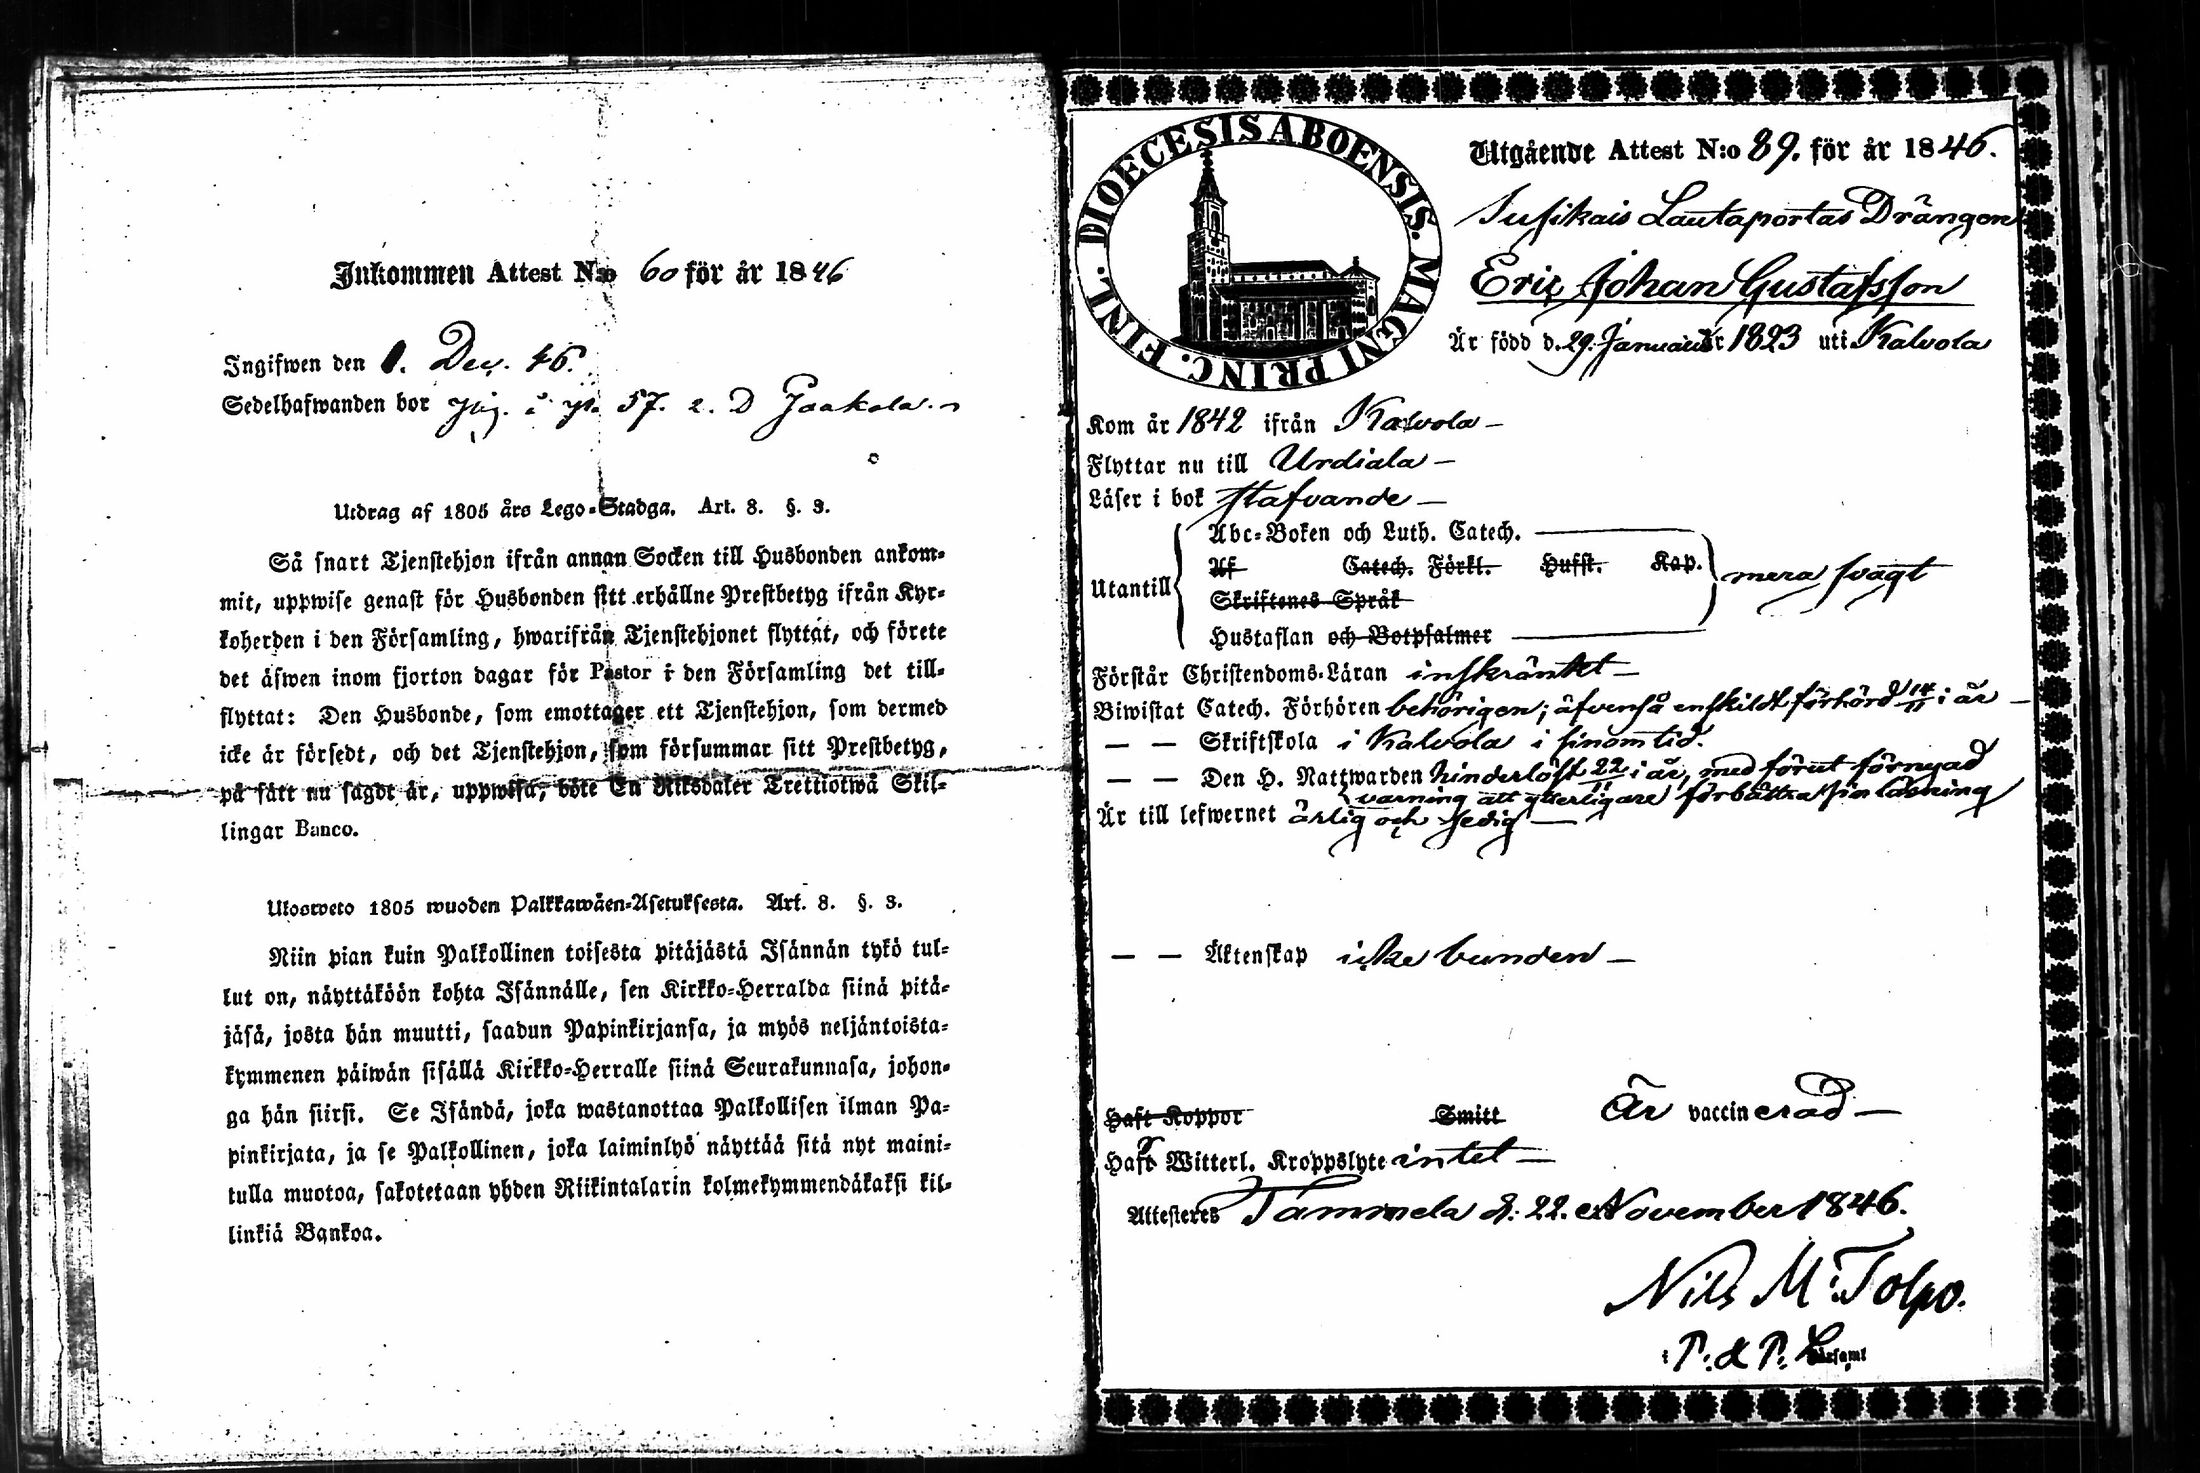 Inkommen Attest N:o 60 för år 1846
Ingifwen den 1. Dec. 46.
Sedelhafwanden bor
57. Jaakola.
Utdrag af 1805 års Lego-Stadga. Art. 8. §. 3.
Så snart Tjenstehjon ifrån annan Socken till Husbonden ankom-
mit, uppwise genast för Husbonden sitt erhållne Prestbetyg ifrån Kyr-
koherden i den Församling, hwarifrån Tjenstehjonet flyttat, och förete
det äfwen inom fjorton dagar för Pastor i den Församling det till-
flyttat: Den Husbonde, som emottager ett Tjenstehjon, som dermed
icke är försedt, och det Tjenstehjon, som försummar sitt Prestbetyg,
på sätt nu sagdt är, uppwisa, böte En Riksdaler Trettiotwå Skil-
lingar Banco.
Ulosweto 1805 wuoden Palkkawäen-Asetuksesta. Art. 8. §. 3.
Niin pian kuin Palkollinen toisesta pitäjästä Isännän tykö tul-
lut on, näyttäköön kohta Isännälle, sen Kirkko-Herralda siinä pitä-
jäsä, josta hän muutti, saadun Papinkirjansa, ja myös neljäntoista-
kymmenen päiwän sisällä Kirkko-Herralle siinä Seurakunnasa, johon-
ga hän siirsi. Se Isändä, joka wastanottaa Palkollisen ilman Pa-
pinkirjata, ja se Palkollinen, joka laiminlyö näyttää sitä nyt maini-
tulla muotoa, sakotetaan yhden Riikintalarin kolmekymmendäkaksi kil-
linkiä Bankoa.
DIOECESIS ABOENSIS. MAGNI PRINC. FINL.
Utgående Attest N:o 89. för år 1846.
Susikais Lautaportas Drängen
Eric Johan Gustafsson
Är född d. 29. Januarii År 1823 uti Kalvola
Kom år 1842 ifrån Kalvola –
Flyttar nu till Urdiala –
Läser i bok stafvande –
Abc-Boken och Luth. Catech.
Af Catech. Förkl. Husst. Kap.
Utantill mera svagt
Skriftenes Språk
Hustaflan och Botpsalmer
Förstår Christendoms-Läran inskränkt –
Biwistat Catech. Förhören behörigen; äfvenså enskildt förhörd 14/11 i år –
– – Skriftskola i Kalvola i sinom tid.
– – Den H. Nattwarden hinderlöst 22/11 i år, med förut förnyad
varning att ytterligare förbättra sin läsning
Är till lefwernet ärlig och sedig –
– – Äktenskap icke bunden –
Haft Koppor Smitt Är vaccinerad –
Haft Witterl. Kroppslyte intet –
Attesteres Tammela d: 22. November 1846.
Nils M: Tolpo.
i P: & P: Församl